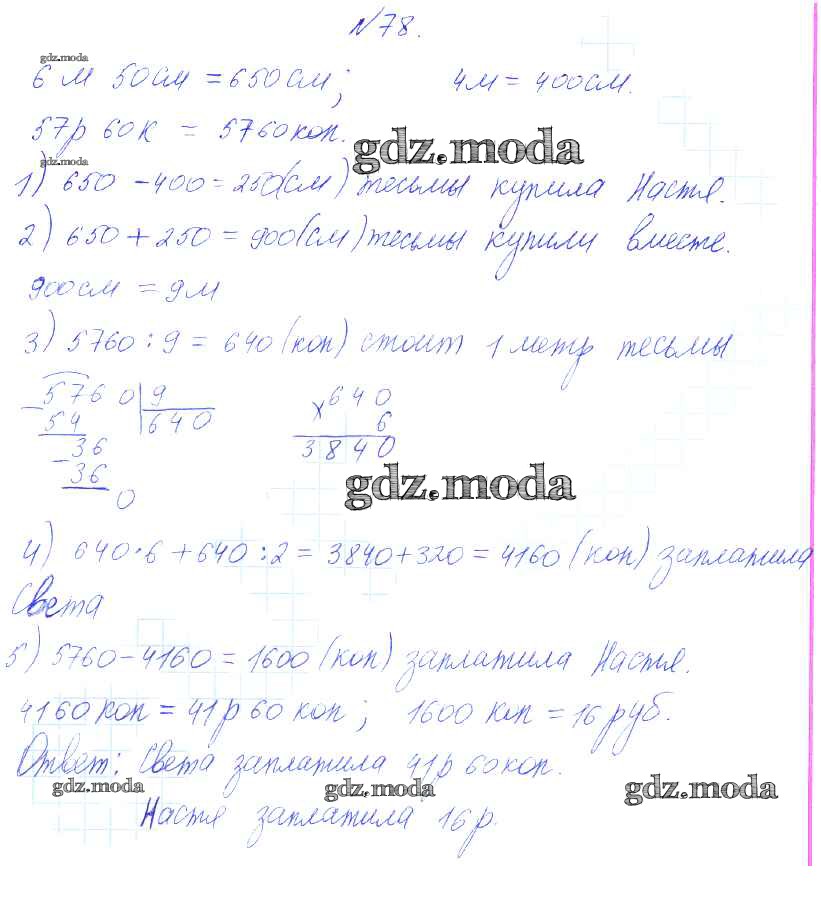 №78.
gdz.moda
6 м 50 см = 650 см; 4м = 400см.
57р 60к = 5760 коп.
gdz.moda
gdz.moda
1) 650 - 400 = 250(см) тесьмы купила Настя.
2) 650 + 250 = 900(см) тесьмы купили вместе.
900см = 9м
3) 5760 : 9 = 640 (коп) стоит 1 метр тесьмы
5760 9 × 640
- 54 640 6
- 36 3840
36
0
gdz.moda
4) 640·6 + 640 : 2 = 3840 + 320 = 4160 (коп) заплатила
Света
5) 5760 - 4160 = 1600 (коп) заплатила Настя.
4160 коп = 41р 60 коп; 1600 коп = 16 руб.
Ответ: Света заплатила 41р 60коп.
gdz.moda gdz.moda gdz.moda
Настя заплатила 16р.